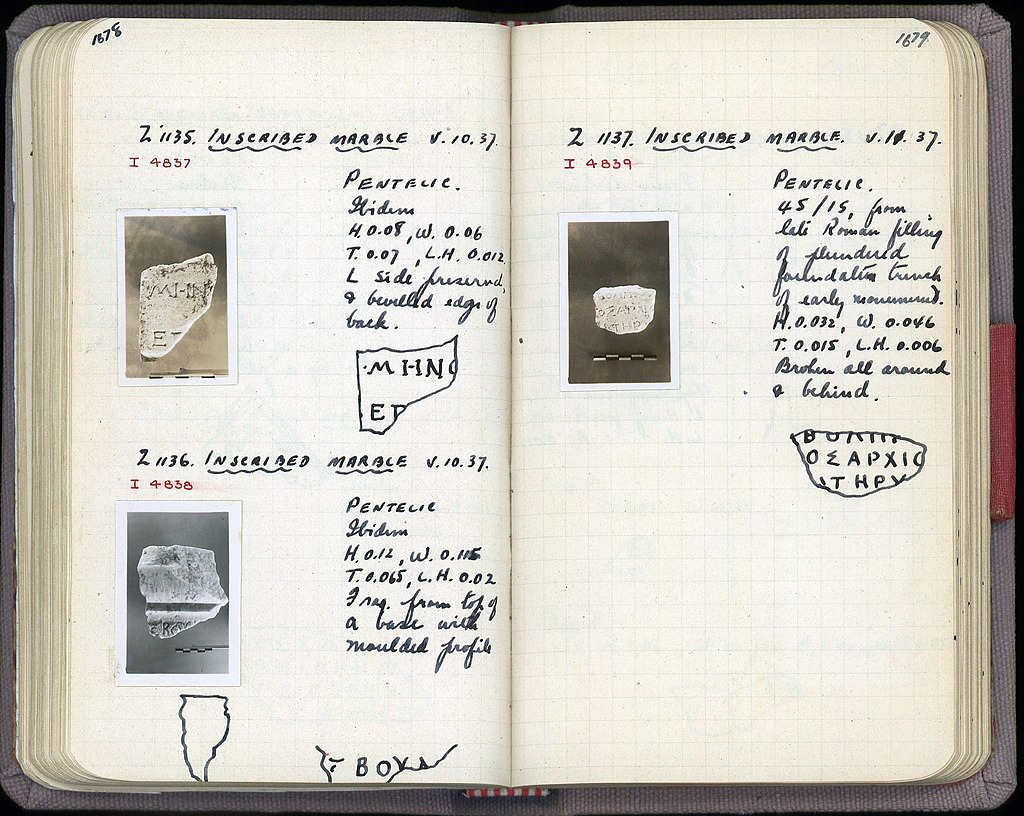 1678
Z 1135. INSCRIBED MARBLE V.10.37.
I 4837
PENTELIC.
Ibidem
H. 0.08, W. 0.06
T. 0.07, L.H. 0.012
L side preserved,
& bevelled edge of
back.
ΜΗΝ
ΕΓ
Z 1136. INSCRIBED MARBLE V.10.37.
I 4838
PENTELIC
Ibidem
H. 0.12, W. 0.115
T. 0.065, L.H. 0.02
Frag. from top of
a base with
moulded profile
ΒΟΥΛ
1679
Z 1137. INSCRIBED MARBLE. V.11.37.
I 4839
PENTELIC.
45/15, from
late Roman filling
of plundered
foundation trench
of early monument.
H. 0.032, W. 0.046
T. 0.015, L.H. 0.006
Broken all around
& behind.
ΟΣΑΡΧΙ
ΤΗΡΥ